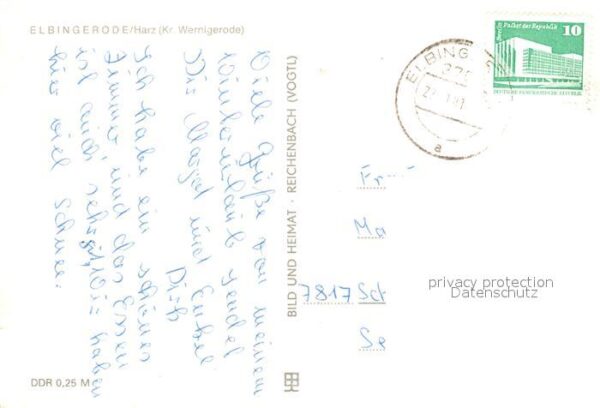 ELBINGERODE/Harz (Kr. Wernigerode)
Viele Grüße von meinem
Winterurlaub sendet
Dir Margot und Enkel
Dirk
Ich habe ein schönes
Zimmer und das Essen
ist auch sehr gut, Wir haben
hier viel Schnee.
DDR 0,25 M
BILD UND HEIMAT · REICHENBACH (VOGTL)
ELBING
a
Berlin, Palast der Republik
10
DEUTSCHE DEMOKRATISCHE REPUBLIK
Fr
Ma
7817 Sct
Se
privacy protection
Datenschutz